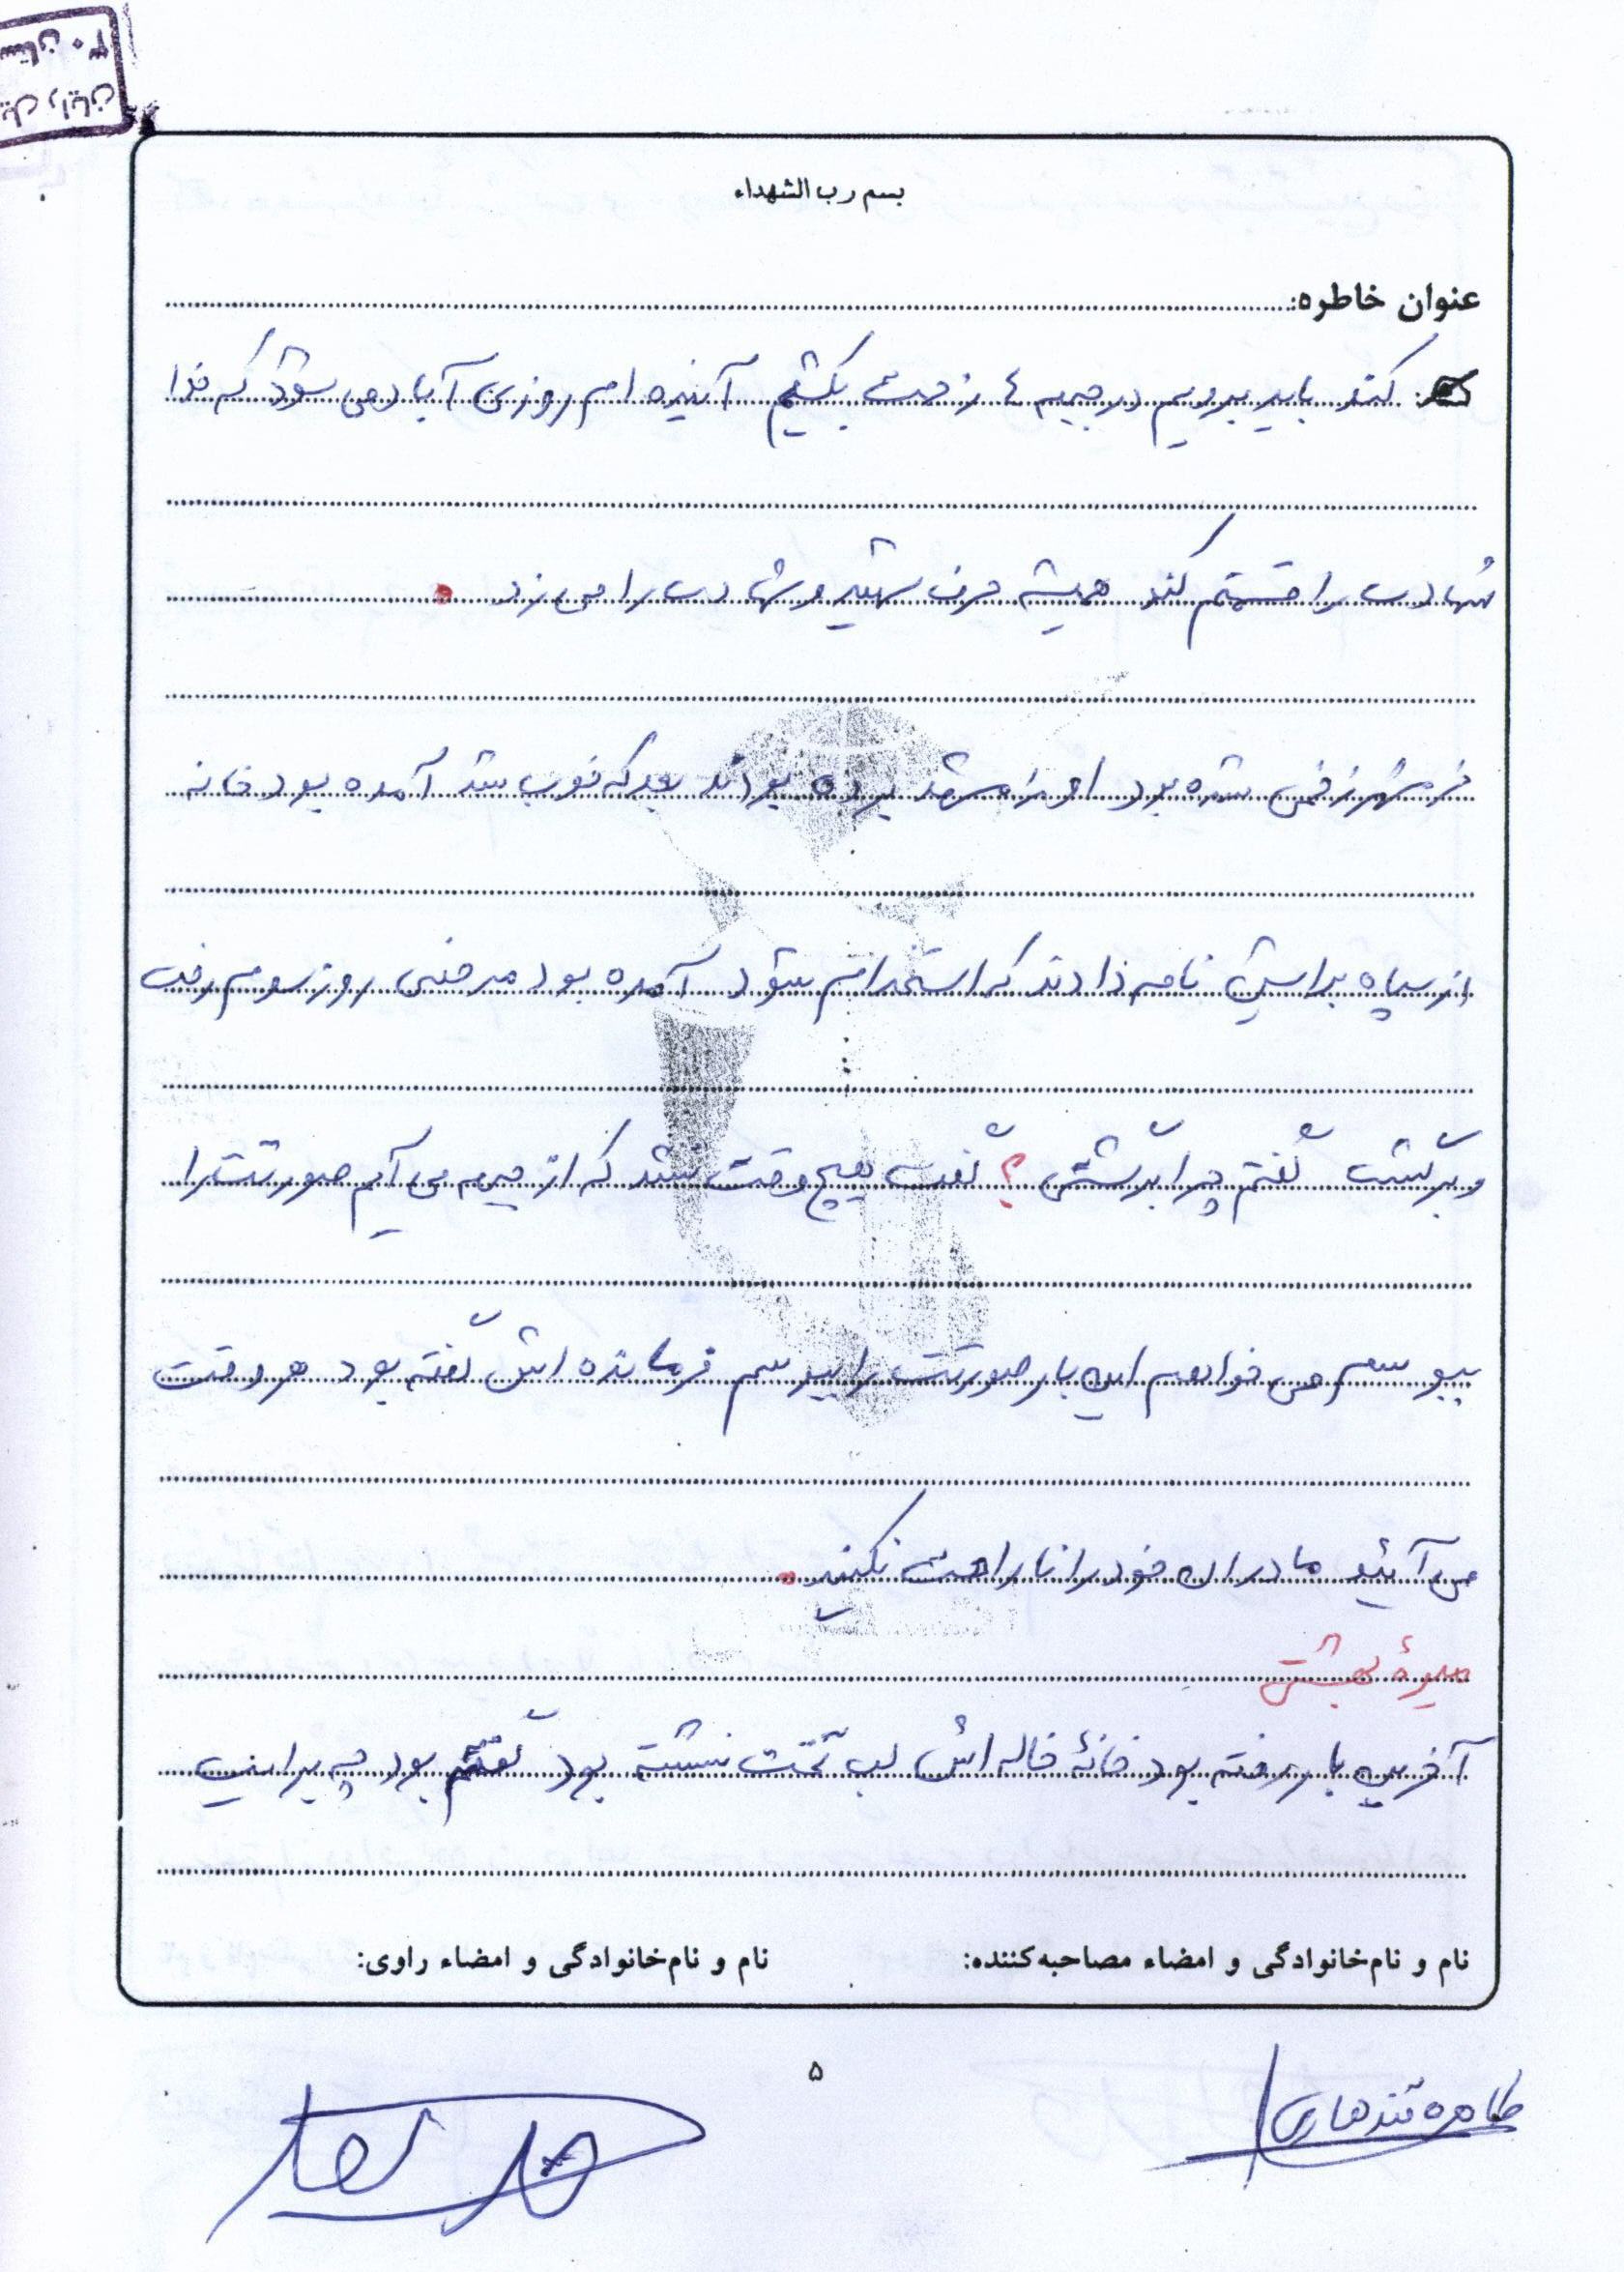 بسم رب الشهداء
عنوان خاطره:
کند باید برویم در جبهه ، زحمت بکشیم آینده ام روزی آباد می شود که خدا
شهادت را قسمتم کند همیشه حرف شهید و شهادت را می زد .
خرمشهر زخمی شده بود او را مشهد برده بودند بعد که خوب شد آمده بود خانه
از سپاه برایش نامه دادند که استخدام شود آمده بود مرخصی روز سوم رفت
و برگشت گفتم چرا برگشتی ؟ گفت هیچ وقت نشد که از جبهه می آیم صورتت را
ببوسم می خواهم این بار صورتت را ببوسم فرمانده اش گفته بود هر وقت
می آیید مادران خود را ناراحت نکنید .
میوهٔ بهشتی
آخرین بار رفته بود خانهٔ خاله اش لب تخت نشسته بود گفته بود چه برایت
نام و نام‌خانوادگی و امضاء مصاحبه‌کننده: نام و نام‌خانوادگی و امضاء راوی:
۵
طاهره قندهاری